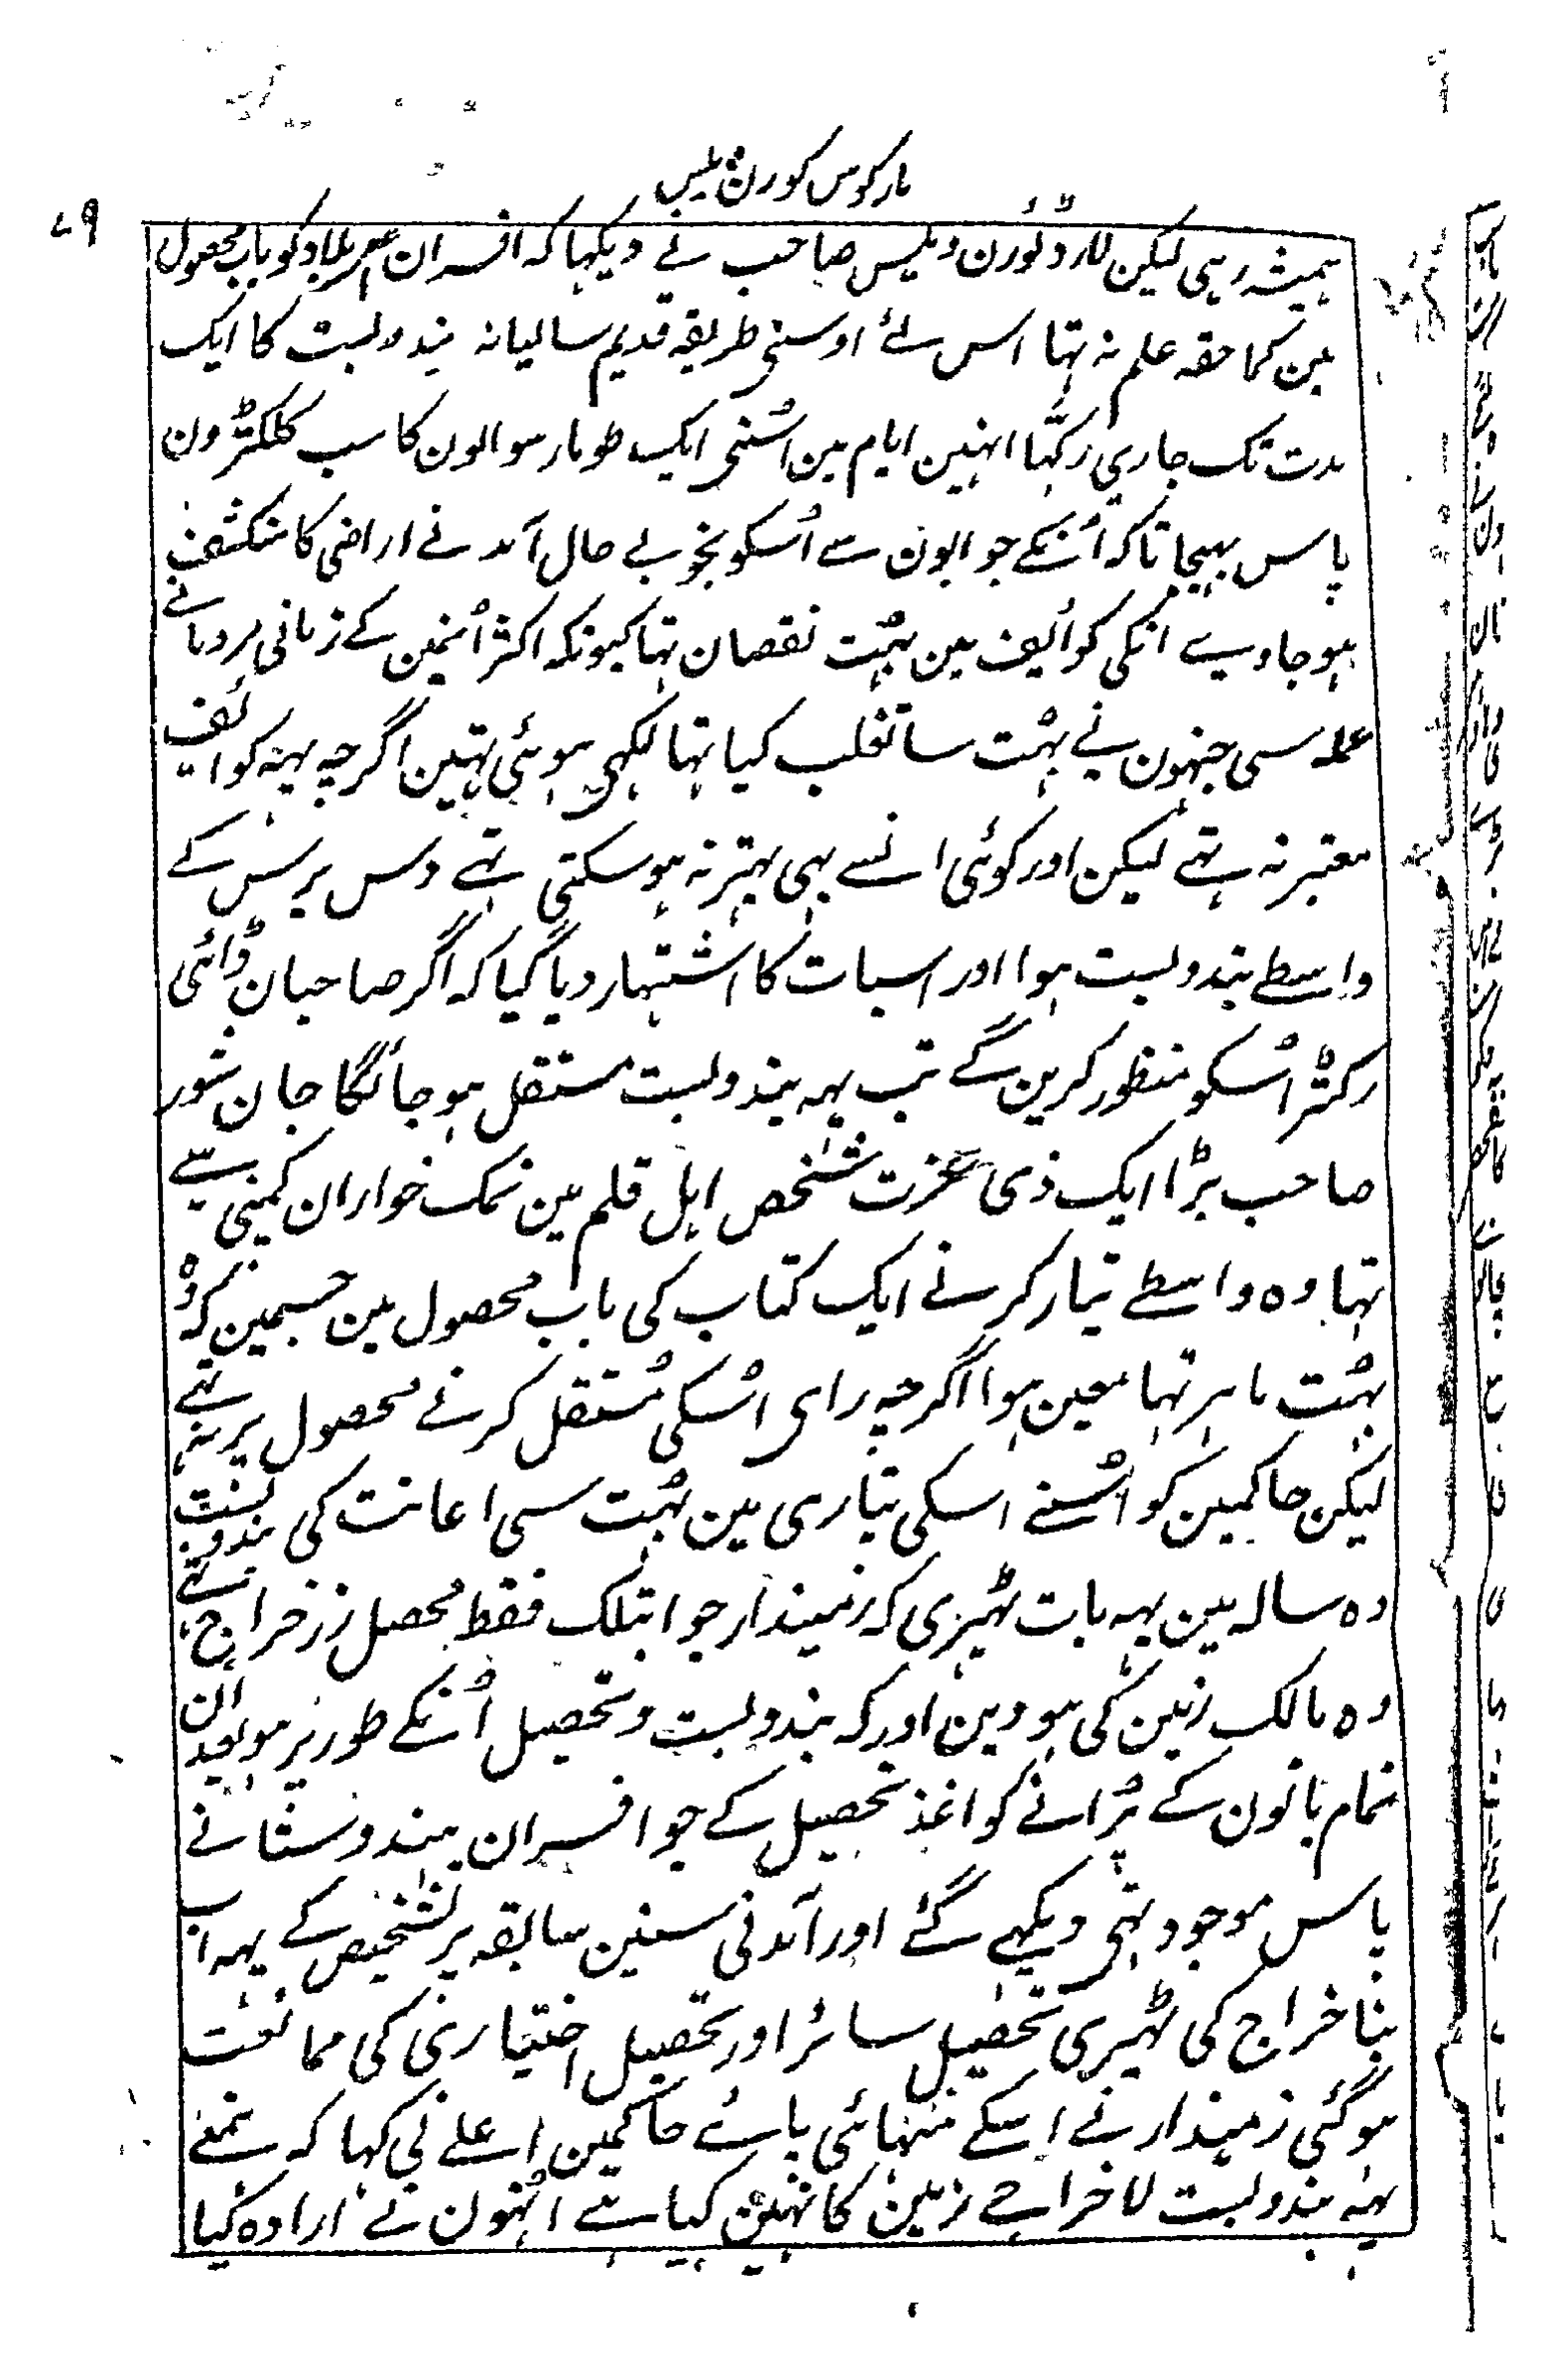 مارکوس کورن ویلیس
۷۹
ہمیشہ رہی لیکن لارڈ کورن ویلیس صاحب نے دیکہا کہ افسران کو باب محصول
مین کما حقہ علم نہ تہا اس لئے اوسنی طریقہ قدیم سالیانہ بندوبست کا ایک
مدت تک جاری رکہا انہین ایام مین اُسنی ایک طومار سوالون کا سب کلکٹرون
پاس بہیجا تاکہ اُنکے جوابون سے اُسکو بخوبے حال آمدنے اراضی کا منکشف
ہوجاوے انکی کوائیف مین بہُت نقصان تہا کیونکہ اکثر اُنمین کے زبانی
عملہ سی جنہون نے بہُت سا تغلب کیا تہا لکہی ہوئی تہین اگرچہ یہہ کوائف
معتبر نہ تہے لیکن اور کوئی انسے بہی بہتر نہ ہوسکتی تہے دس برس کے
واسطے بندوبست ہوا اور اسبات کا اشتہار دیا گیا کہ اگر صاحبان ڈائی
رکٹر اُسکو منظور کرین گے تب یہہ بندوبست مستقل ہوجائگا جان شور
صاحب بڑا ایک ذی عزت شخص اہل قلم مین نمک خواران کمپنی سے
تہا وہ واسطے تیار کرنے ایک کتاب کی باب محصول مین جسمین کہ وہ
بہُت ماہر تہا معین ہوا اگرچہ رای اُسکی مُستقل کرنے محصول پر نہ تہے
لیکن حاکمین کو اُسنے اسکی تیاری مین بہُت سی اعانت کی بندوبست
دہ سالہ مین یہہ بات ٹہیری کہ زمیندار جو ابتلک فقط محصل زر خراج تہے
وہ مالک زمین کی ہووین اور کہ بندوبست و تحصیل اُنکے طور پر ہو بعد ان
تمام باتون کے پُرانے کواغذ تحصیل کے جو افسران ہندوستانے
پاس موجود تہی دیکہے گئے اور آمدنی سنین سابقہ پر تشخیص کے یہہ اب
بنا خراج کی ٹہیری تحصیل سائر اور تحصیل اختیاری کی ممانعت
ہوگئی زمیندار نے اسکے منہائی پائے حاکمین اعلے نی کہا کہ ہمنے
یہہ بندوبست لاخراجے زمین کا نہین کیا ہے اُنہون نے ارادہ کیا